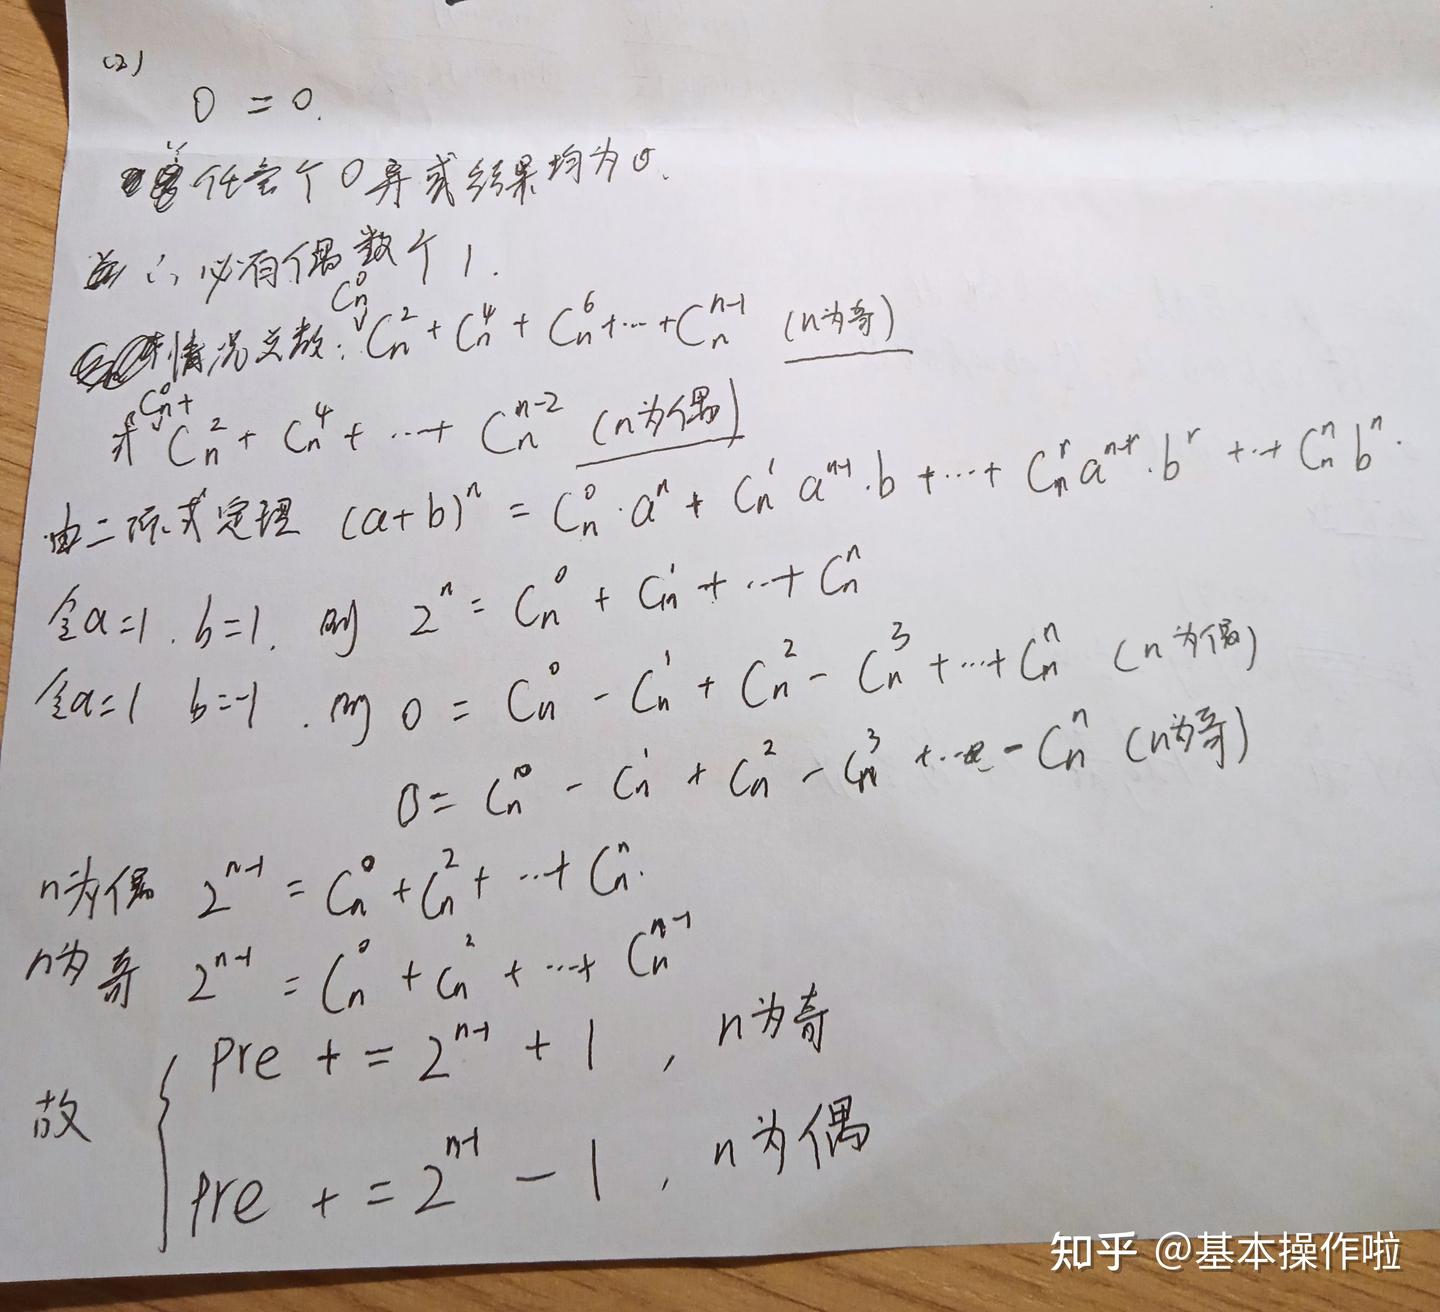 (2)
0 = 0.
∵ 任意个0异或结果均为0.
∴ 必有偶数个1.
情况总数: C_n^0 C_n^2 + C_n^4 + C_n^6 + … + C_n^{n-1} (n为奇)
或 C_n^0 + C_n^2 + C_n^4 + … + C_n^{n-2} (n为偶)
由二项式定理 (a+b)^n = C_n^0·a^n + C_n^1 a^{n-1}·b + … + C_n^r a^{n-r}·b^r + … + C_n^n b^n.
令a=1. b=1. 则 2^n = C_n^0 + C_n^1 + … + C_n^n
令a=1 b=-1. 则 0 = C_n^0 - C_n^1 + C_n^2 - C_n^3 + … + C_n^n (n为偶)
0 = C_n^0 - C_n^1 + C_n^2 - C_n^3 + … - C_n^n (n为奇)
n为偶 2^{n-1} = C_n^0 + C_n^2 + … + C_n^n.
n为奇 2^{n-1} = C_n^0 + C_n^2 + … + C_n^{n-1}
故 { pre += 2^{n-1} + 1, n为奇
pre += 2^{n-1} - 1, n为偶
知乎 @基本操作啦